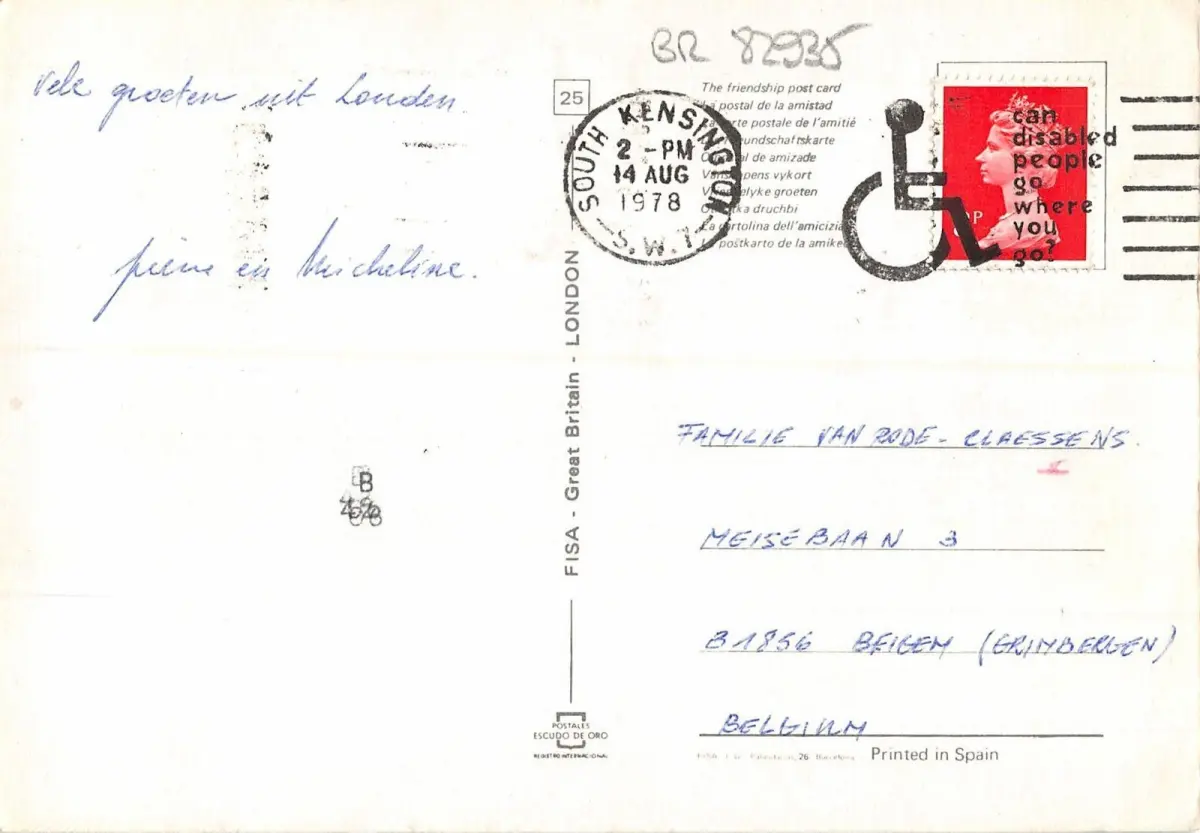 BR 82935
Vele groeten uit Londen.
pierre en Micheline.
B
25
The friendship post card
La postal de la amistad
carte postale de l'amitié
undschaftskarte
al de amizade
pens vykort
elyke groeten
druchbi
La cartolina dell'amicizia
postkarto de la amike
SOUTH KENSINGTON
2 -PM
14 AUG
1978
S.W.7.
can
disabled
people
go
where
you
go?
P
FISA - Great Britain - LONDON
FAMILIE VAN RODE - CLAESSENS.
MEISEBAAN 3
B1856 BEIGEM (GRIMBERGEN)
BELGIUM
POSTALES
ESCUDO DE ORO
REGISTRO INTERNACIONAL
26 Barcelona
Printed in Spain